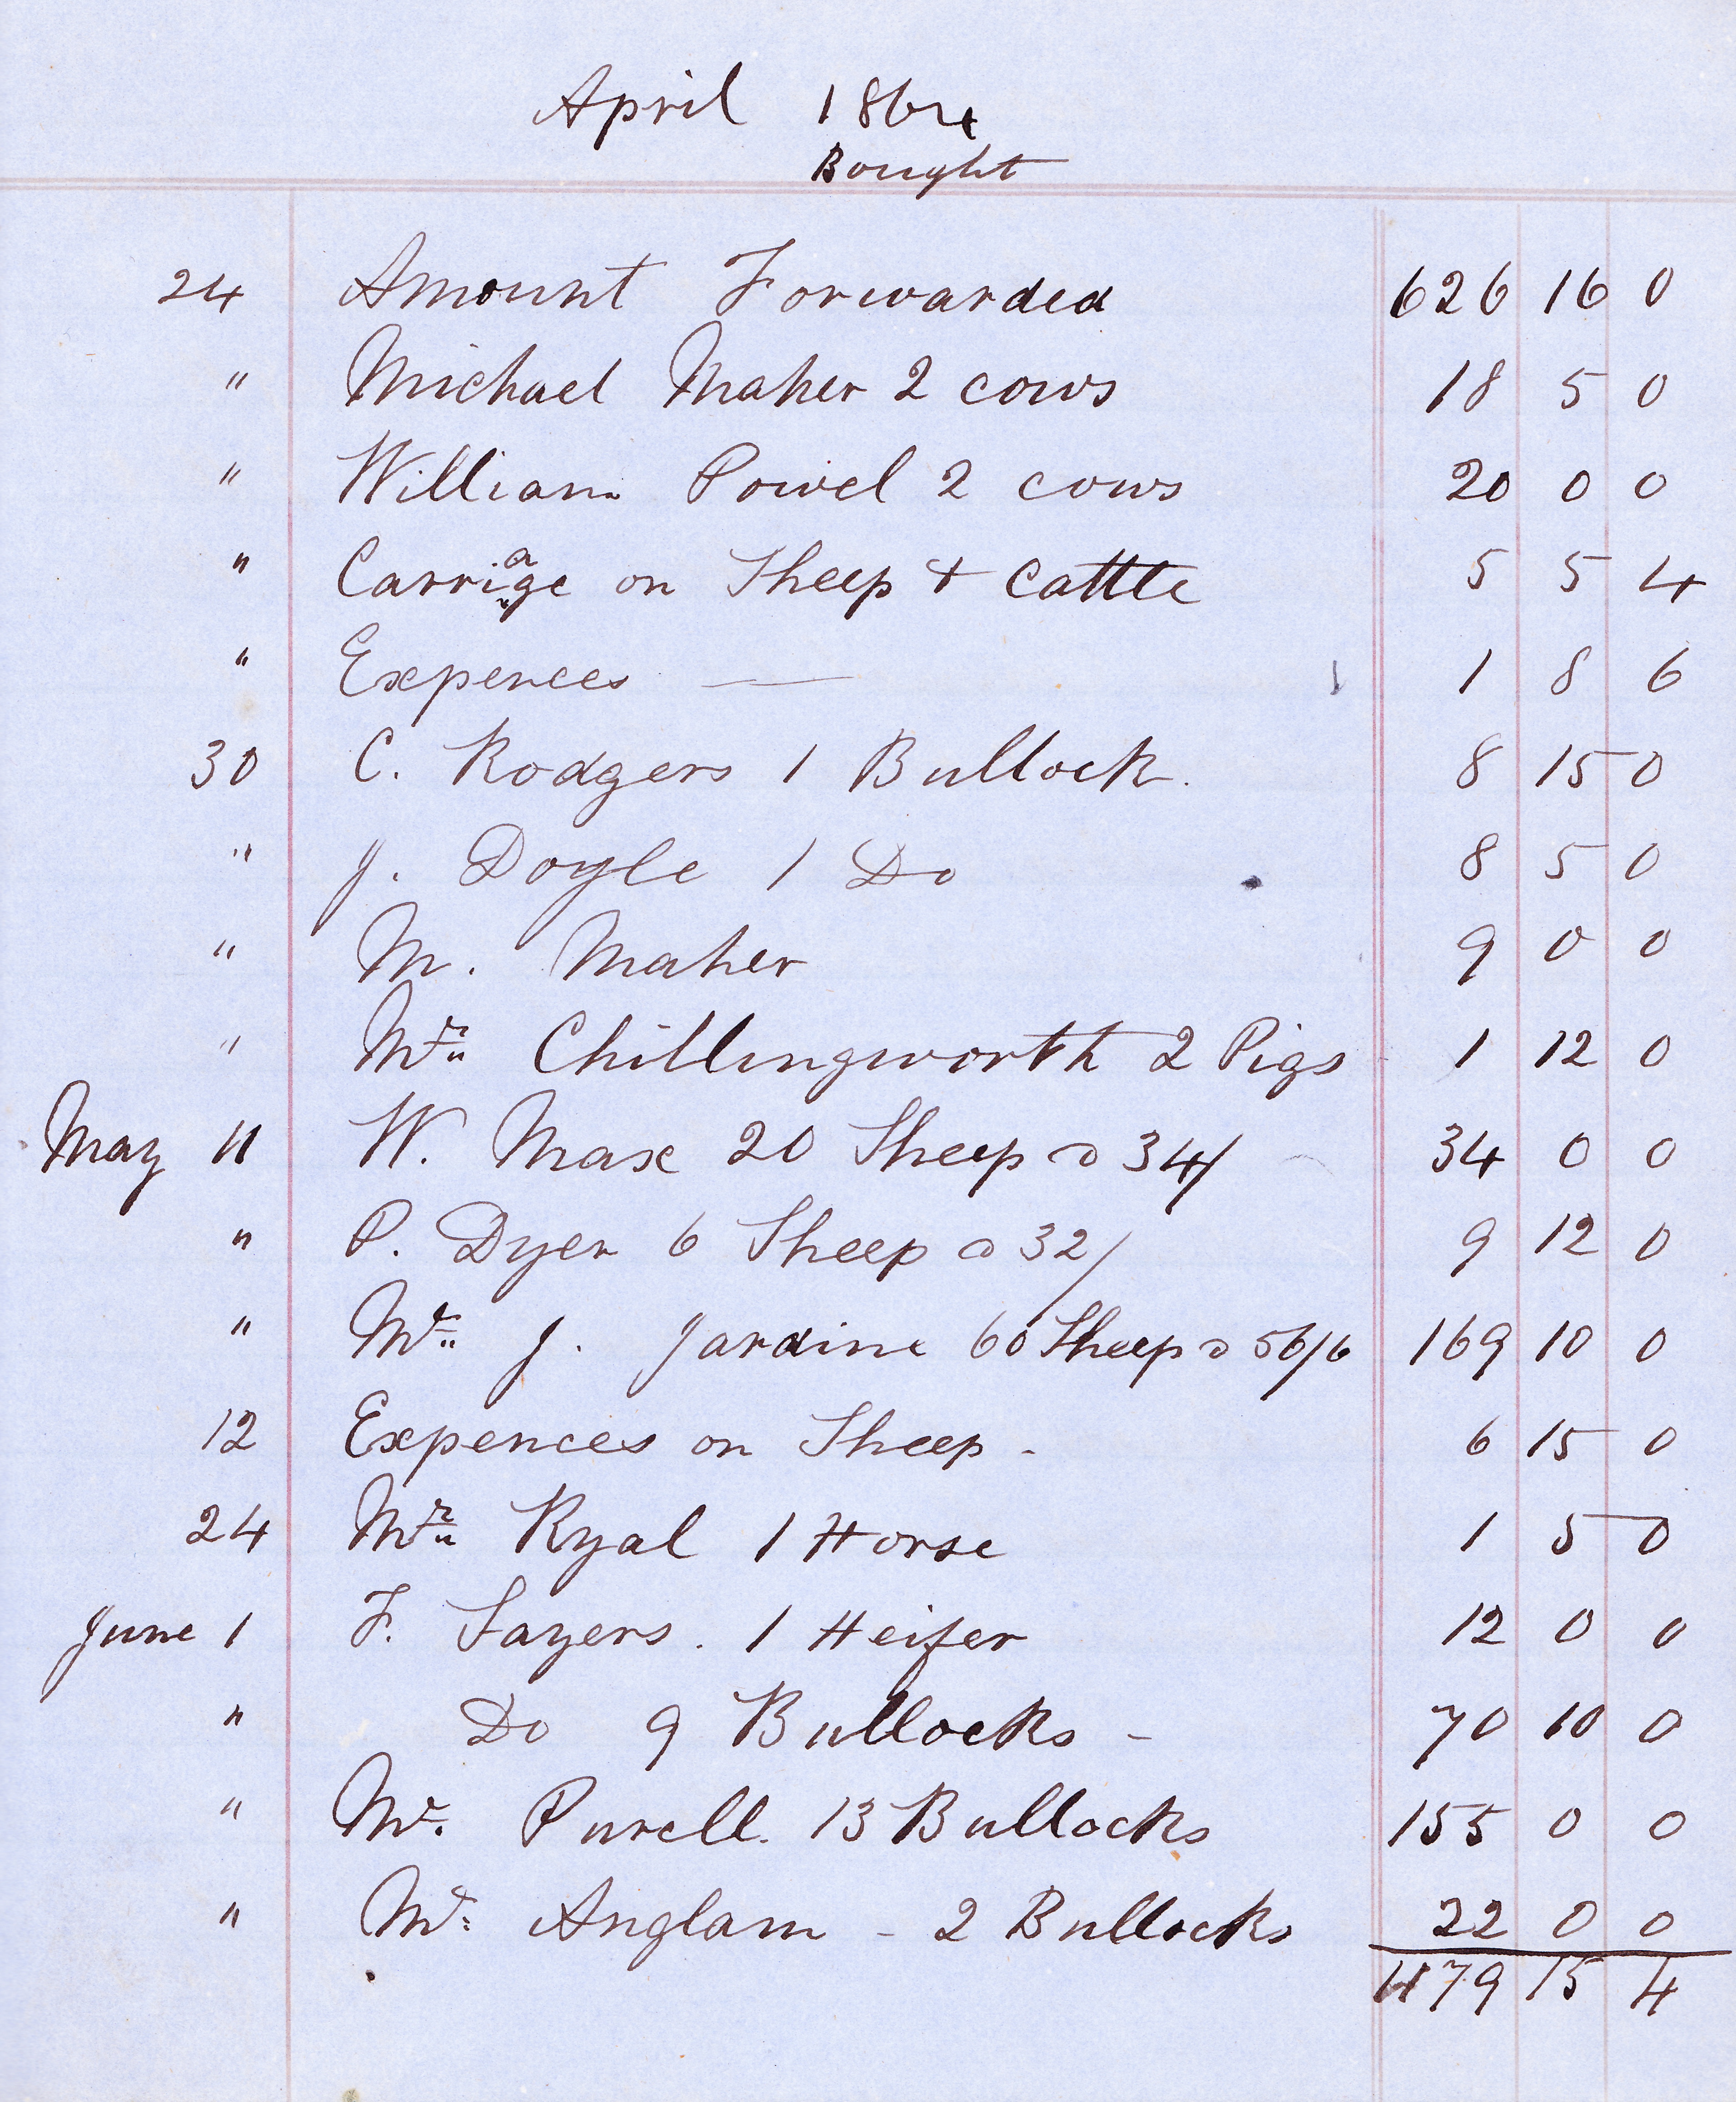 April 1864
Bought
24 Amount Forwarded 626 16 0
" Michael Maher 2 cows 18 5 0
" William Powel 2 cows 20 0 0
" Carriage on Sheep + Cattle 5 5 4
" Expences — 1 8 6
30 C. Rodgers 1 Bullock. 8 15 0
" J. Doyle 1 Do 8 5 0
" M. Maher 9 0 0
" Mr Chillingworth 2 Pigs 1 12 0
May 11 W. Max 20 Sheep @ 34/ 34 0 0
" P. Dyer 6 Sheep @ 32/ 9 12 0
" Mr J. Jardine 60 Sheep @ 56/6 169 10 0
12 Expences on Sheep - 6 15 0
24 Mr Ryal 1 Horse 1 5 0
June 1 F. Sayers. 1 Heifer 12 0 0
" Do 9 Bullocks - 70 10 0
" Mr. Purell. 13 Bullocks 155 0 0
" Mr. Anglam - 2 Bullocks 22 0 0
1179 15 4